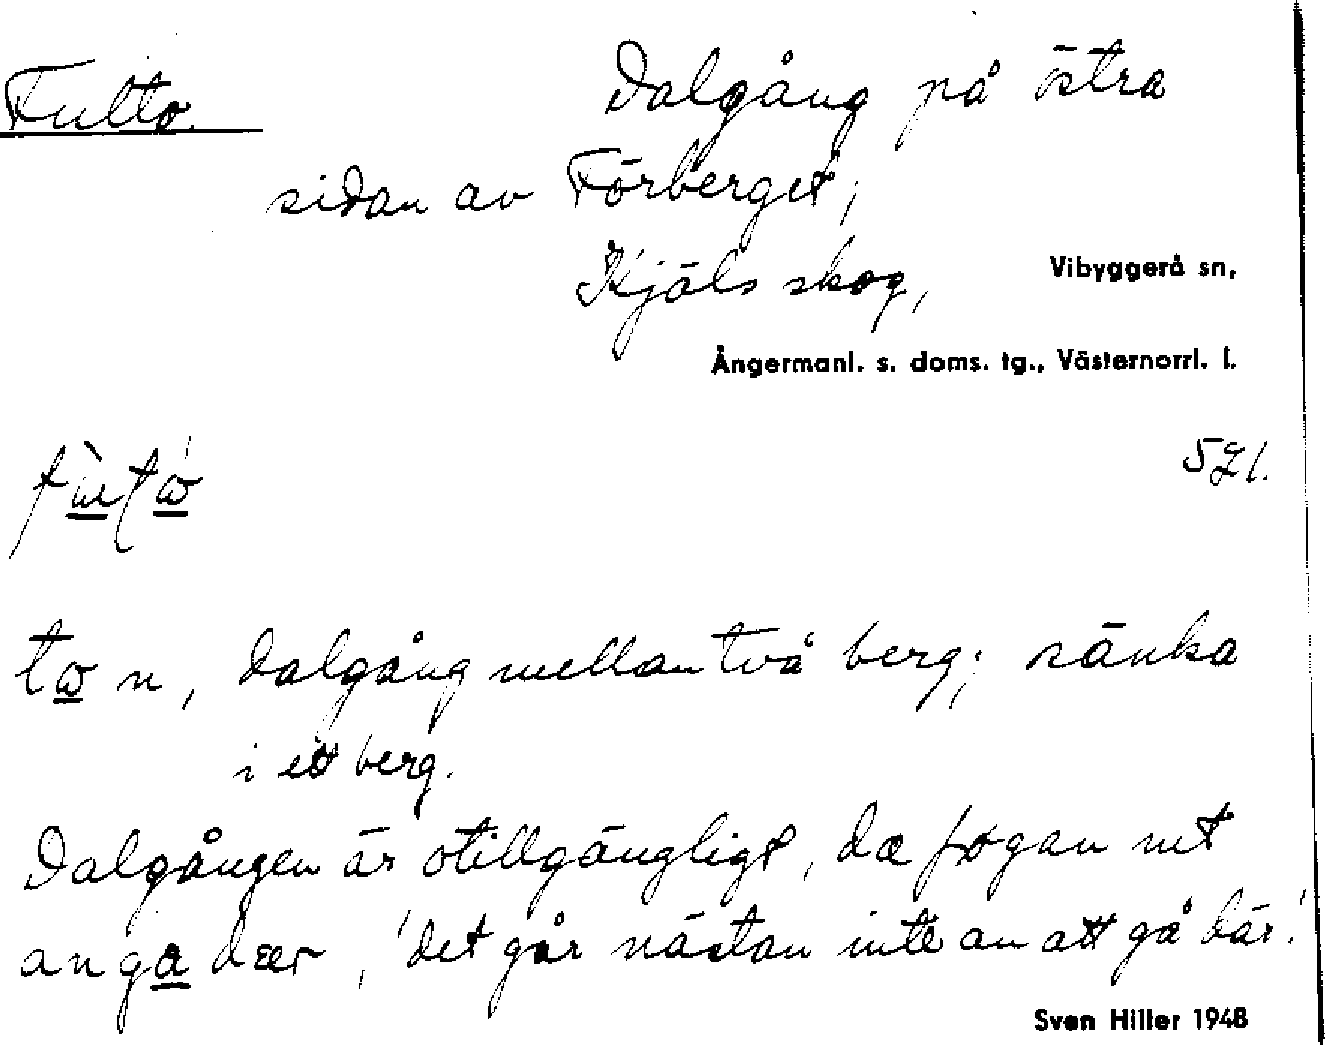 Fultto. Dalgång på östra
sidan av Förberget,
Kjäls skog, Vibyggerå sn,
Ångermanl. s. doms. tg., Västernorrl. l.
521.
to n, dalgång mellan två berg; sänka
i ett berg.
Dalgången är otillgängligt, dæ fogan nt
anga dær, 'det går nästan inte an att gå där.'
Sven Hiller 1948